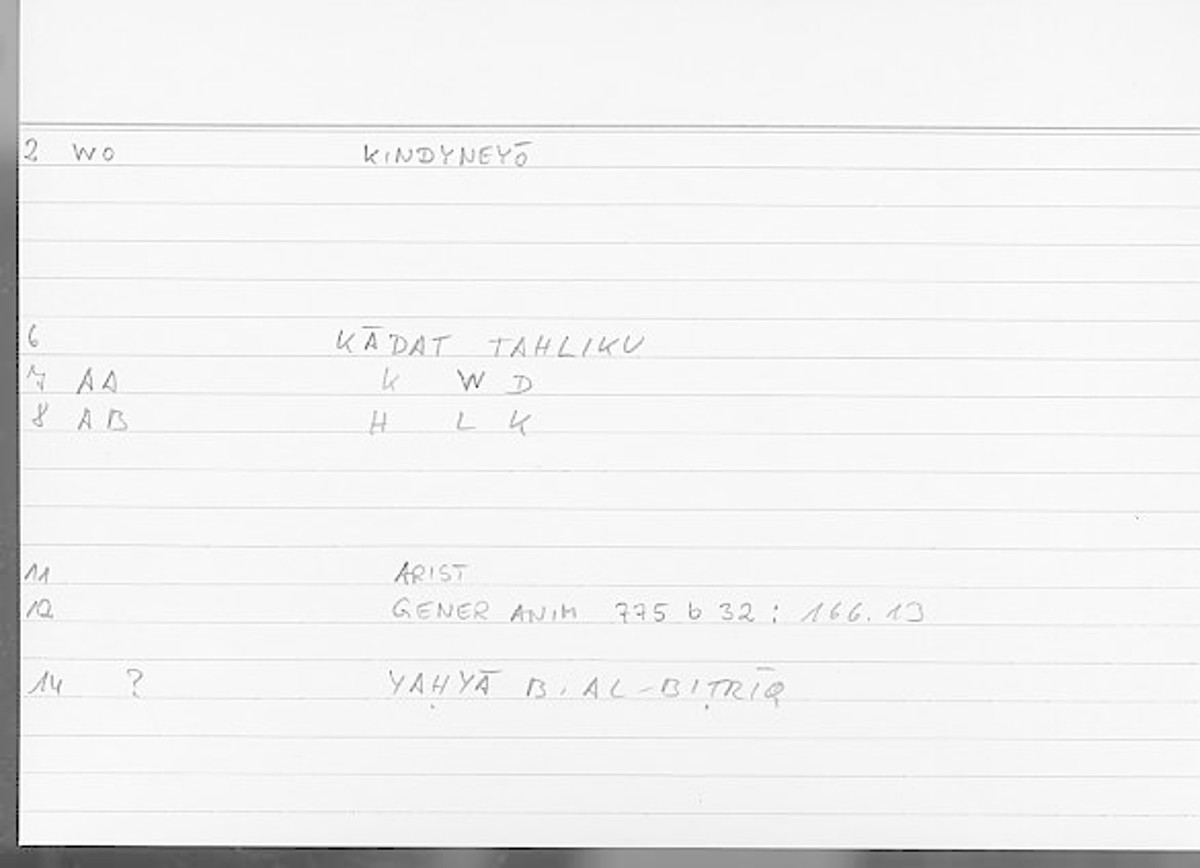 2 WO KINDYNEYŌ
6 KĀDAT TAHLIKU
7 AA K W D
8 AB H L K
11 ARIST
12 GENER ANIM 775 b 32 : 166.19
14 ? YAḤYĀ B. AL-BIṬRĪQ